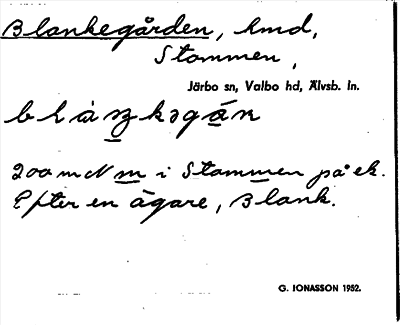 Blankegården, hmd,
Stommen,
Järbo sn, Valbo hd, Älvsb. ln.
200 m N m i Stommen på ek.
Efter en ägare, Blank.
G. IONASSON 1952.